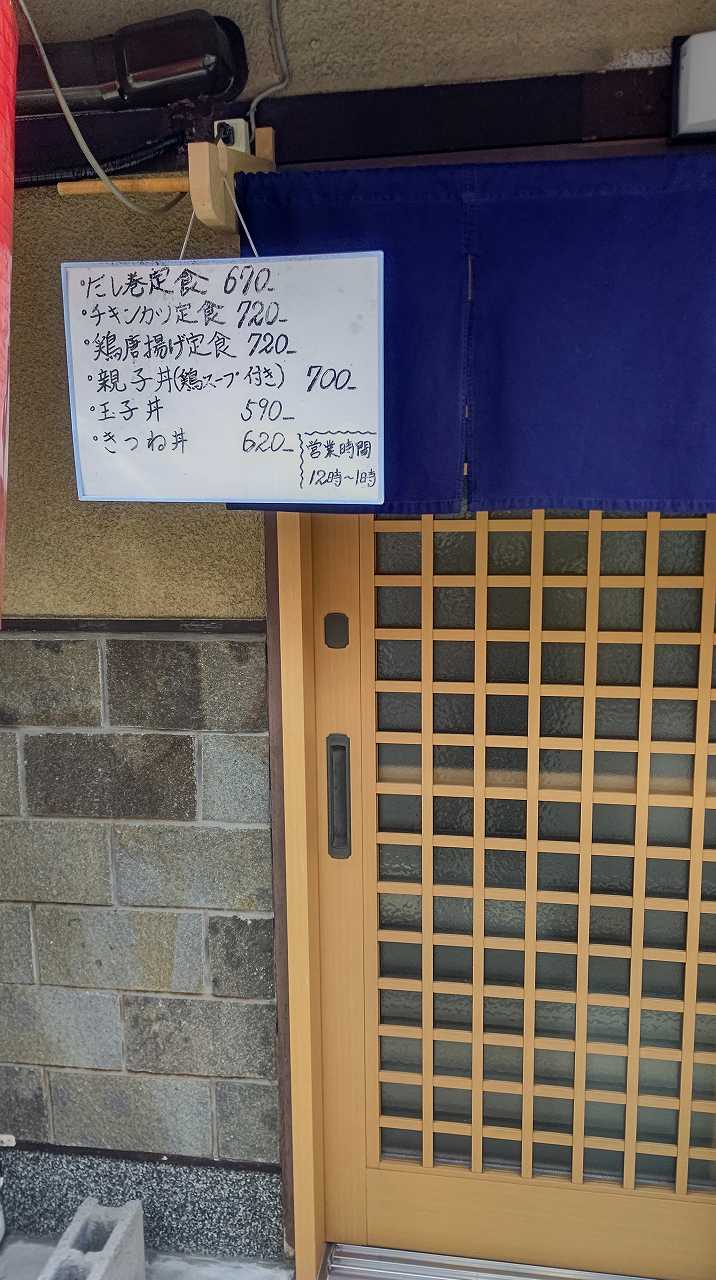 ・だし巻定食 670-
・チキンカツ定食 720-
・鶏唐揚げ定食 720-
・親子丼(鶏スープ付き) 700-
・玉子丼 590-
・きつね丼 620-
営業時間
12時〜1時